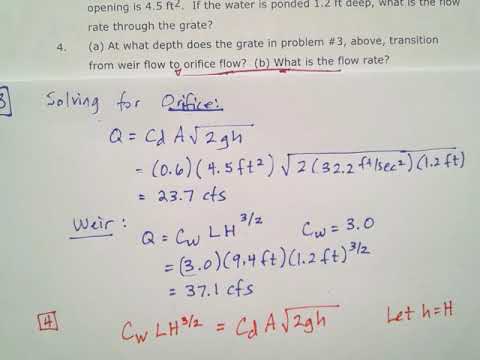 opening is 4.5 ft². If the water is ponded 1.2 ft deep, what is the flow
rate through the grate?
4. (a) At what depth does the grate in problem #3, above, transition
from weir flow to orifice flow? (b) What is the flow rate?
3 Solving for Orifice:
Q = Cd A √2gh
= (0.6)(4.5 ft²) √2(32.2 ft/sec²)(1.2 ft)
= 23.7 cfs
Weir: Q = Cw LH^3/2 Cw = 3.0
= (3.0)(9.4 ft)(1.2 ft)^3/2
= 37.1 cfs
4 Cw LH^3/2 = Cd A √2gh Let h=H